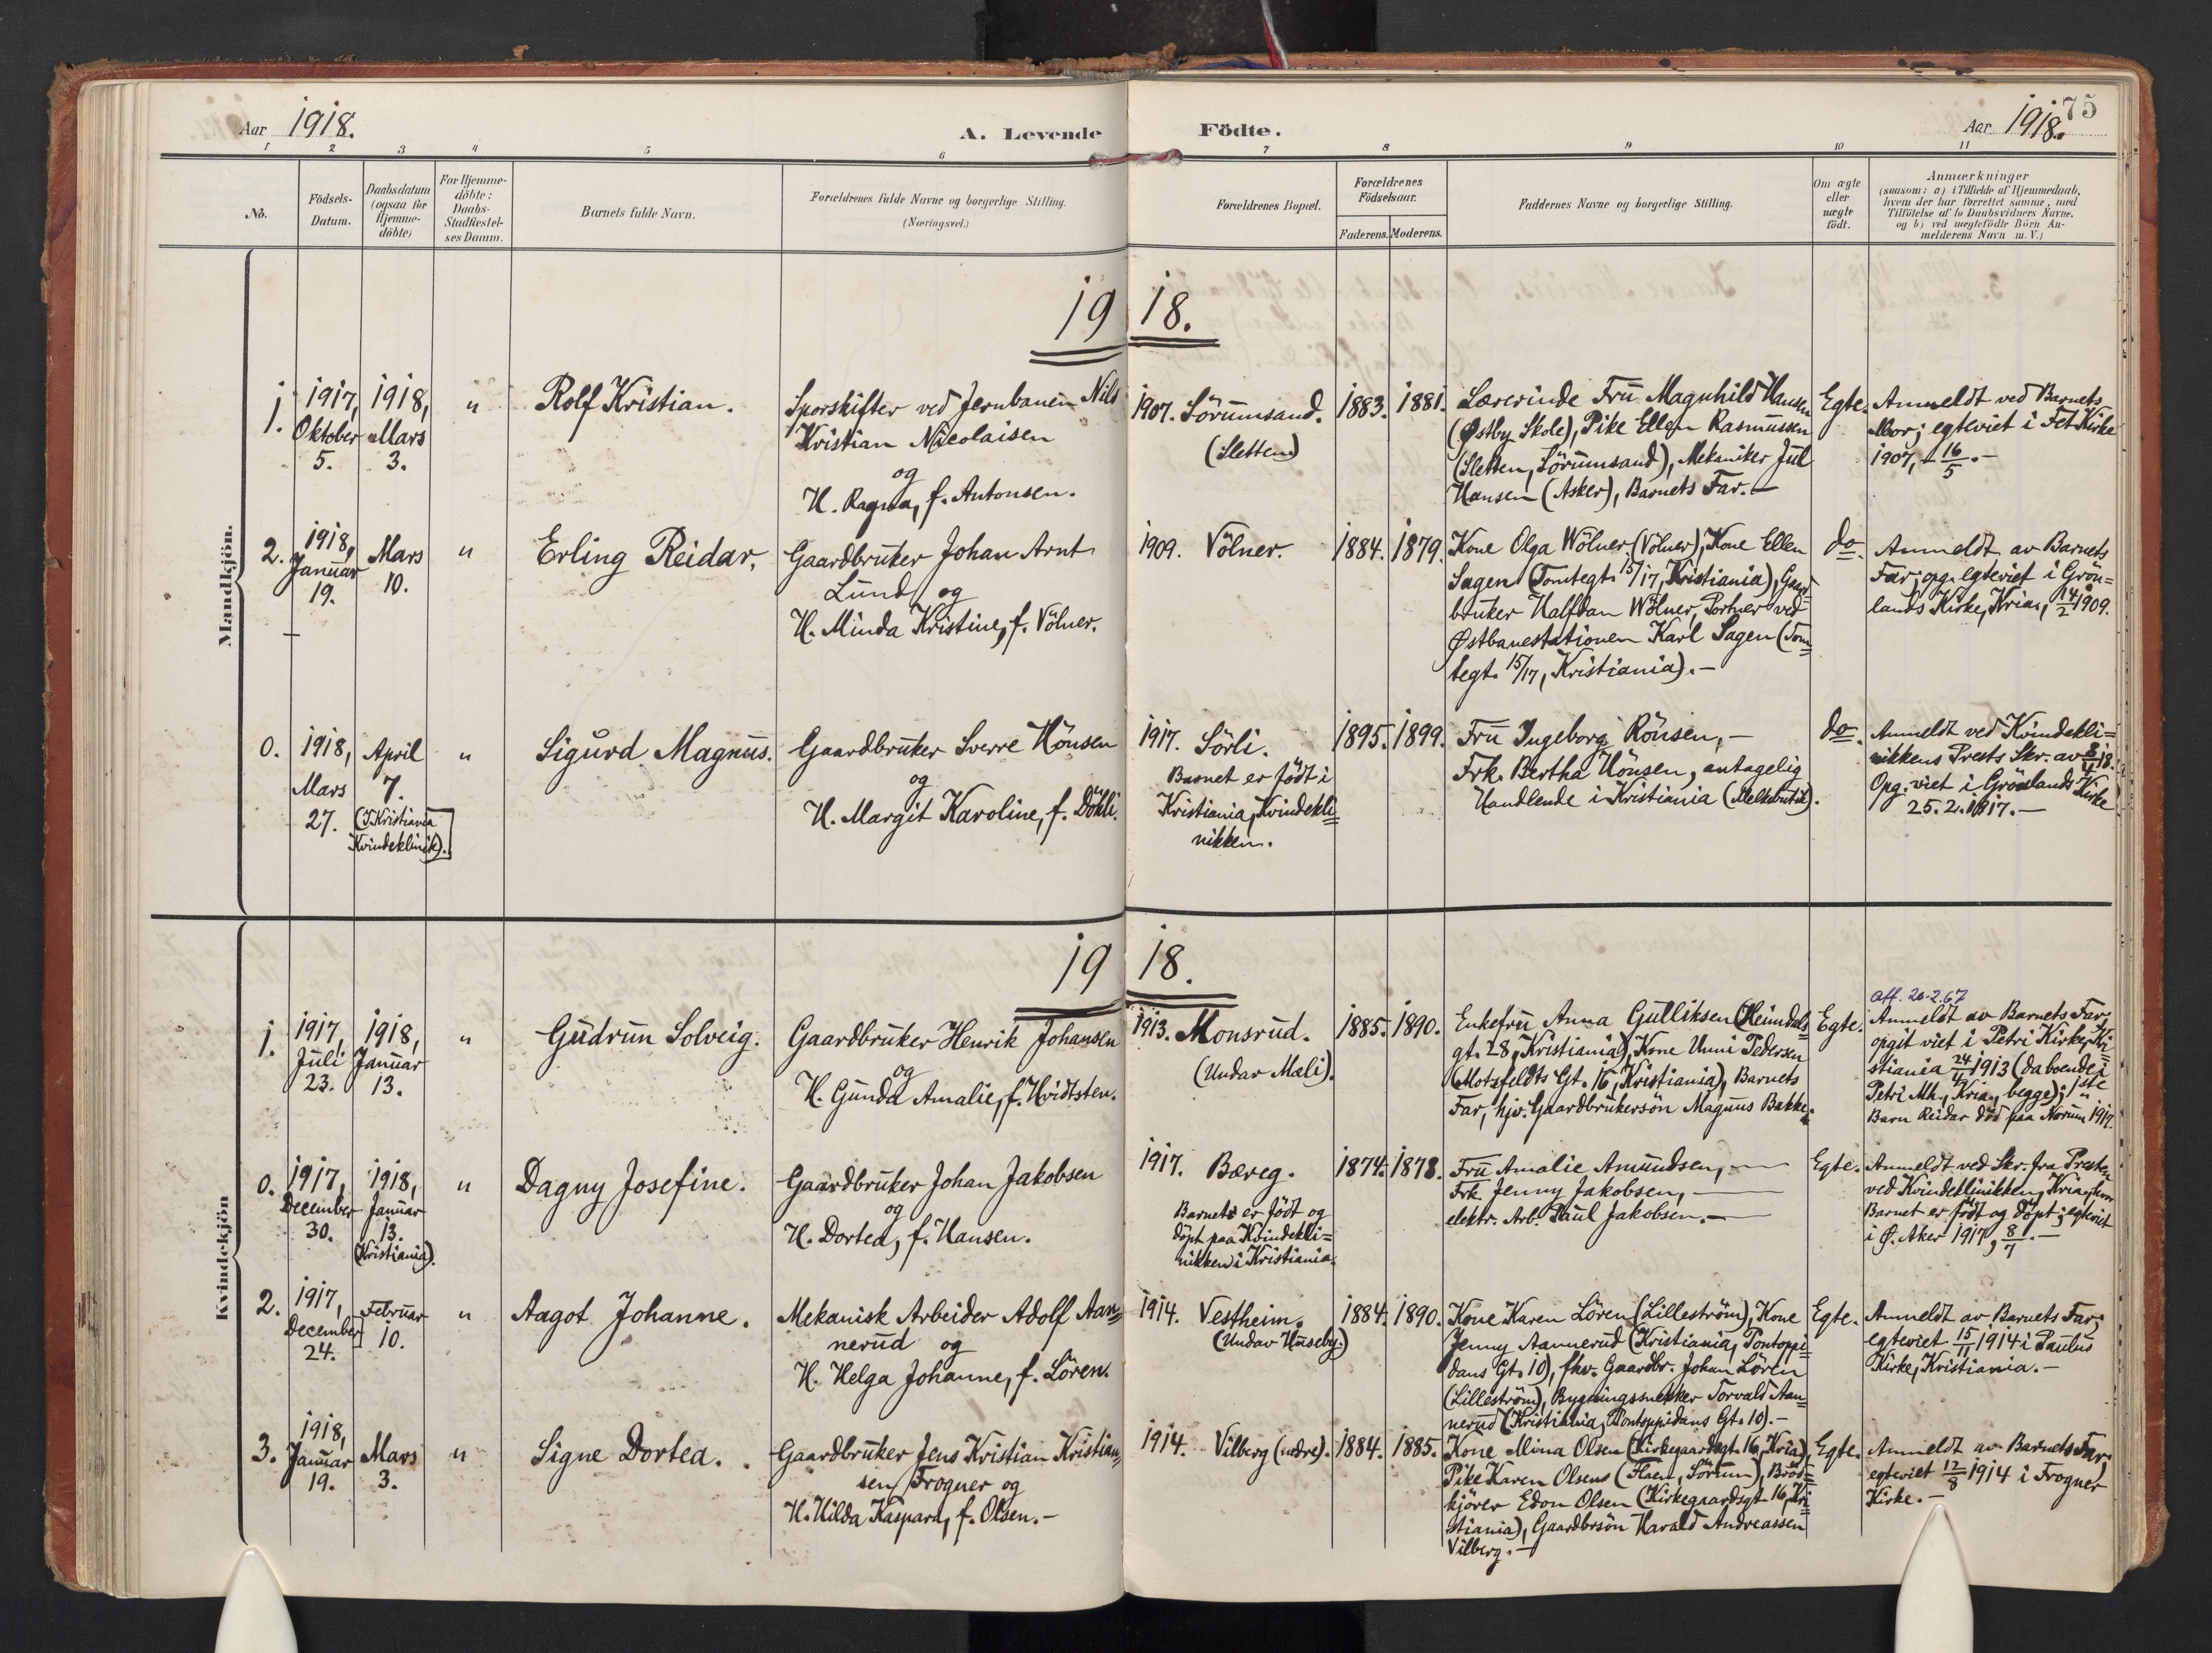 Aar 1918.
A. Levende Födte.
Aar 1918.
75
1 2 3 4 5 6 7 8 9 10 11
No.
Födsels-
Datum.
Daabsdatum
(ogsaa for
Hjemme-
döbte)
For Hjemme-
döbte:
Daabs-
Stadfæstel-
ses Datum.
Barnets fulde Navn.
Forældrenes fulde Navne og borgerlige Stilling.
(Næringsvei.)
Forældrenes Bopæl.
Forældrenes
Födselsaar.
Faderens.
Moderens.
Faddernes Navne og borgerlige Stilling.
Om ægte
eller
uægte
födt.
Anmærkninger
(saasom: a) i Tilfælde af Hjemmedaab,
hvem der har forrettet samme, med
Tilföielse af to Daabsvidners Navne,
og b) ved uægtefödte Börn An-
melderens Navn m. V.)
Mandkjön.
19 18.
1.
1917,
Oktober
5.
1918,
Mars
3.
"
Rolf Kristian.
Sporskifter ved Jernbanen Nils
Kristian Nicolaisen
og
H. Ragna, f. Antonsen.
1907. Sörumsand.
(Sletten)
1883.
1881.
Lærerinde Fru Magnhild Hansen
(Østby Skole), Pike Ellen Rasmussen
(Sletten, Sörumsand), Mekaniker Jul
Hansen (Asker), Barnets Far.—
Egte.
Anmeldt ved Barnets
Mor; egteviet i Fet Kirke
1907, 16/5.—
2.
1918,
Januar
19.
Mars
10.
"
Erling Reidar.
Gaardbruker Johan Arnt
Lund og
H. Minda Kristine, f. Völner.
1909. Völner.
1884.
1879.
Kone Olga Wölner (Völner), Kone Ellen
Sagen (Tomtegt. 15/17, Kristiania), Gaard-
bruker Halfdan Wölner, Portner ved
Østbanestationen Karl Sagen (Tom=
tegt. 15/17, Kristiania).—
do.
Anmeldt av Barnets
Far; opg. egteviet i Grön=
lands Kirke, Kria., 14/2 1909.
0.
1918,
Mars
27.
April
7.
(I Kristiania
Kvindeklinik).
"
Sigurd Magnus.
Gaardbruker Sverre Hönsen
og
H. Margit Karoline, f. Döhli.
1917. Sörli.
Barnet er födt i
Kristiania, Kvindekli=
nikken.
1895.
1899.
Fru Ingeborg Rönsen,—
Frk. Bertha Hönsen, antagelig
Handlende i Kristiania (Melkebutik).
do.
Anmeldt ved Kvindekli=
nikkens Prests Skr. av 8/4 18.
Opg. viet i Grönlands Kirke
25.2.1917.—
Kvindekjön
19 18.
1.
1917,
Juli
23.
1918,
Januar
13.
"
Gudrun Solveig.
Gaardbruker Henrik Johansen
og
H. Gunda Amalie, f. Hvidtsten.
1913. Monsrud.
(Undar Mæli).
1885.
1890.
Enkefru Anna Gulliksen (Heimdals
gt. 28, Kristiania), Kone Unni Pedersen
(Motzfeldts Gt. 16, Kristiania), Barnets
Far, hjv. Gaardbrukersön Magnus Bakke.
Egte.
att. 20.2.67
Anmeldt av Barnets Far,
opgit viet i Petri Kirke, Kri=
stiania 24/4 1913 (da boende i
Petri Mh., Kria., begge); 1ste
Barn Reidar död paa Norum 1917.
0.
1917,
December
30.
1918,
Januar
13.
(Kristiania).
"
Dagny Josefine.
Gaardbruker Johan Jakobsen
og
H. Dortea, f. Hansen.
1917. Bæreg.
Barnet er födt og
döpt paa Kvindekli=
nikken i Kristiania.
1874.
1878.
Fru Amalie Amundsen,—
Frk. Jenny Jakobsen,—
elektr. Arb. Paul Jakobsen.—
Egte.
Anmeldt ved Skr. fra Presten
ved Kvindeklinikken, Kria., hvor
Barnet er födt og döpt; egteviet
i Ø. Aker 1917, 8/7.—
2.
1917,
December
24.
Februar
10.
"
Aagot Johanne.
Mekanisk Arbeider Adolf Aan=
nerud og
H. Helga Johanne, f. Lören.
1914. Vestheim.
(Undar Huseby.)
1884.
1890.
Kone Karen Lören (Lilleström), Kone
Jenny Aannerud (Kristiania, Pontoppi=
dans Gt. 10), fhv. Gaardbr. Johan Lören
(Lilleström), Bygningssnekker Torvald Aan=
nerud (Kristiania, Pontoppidans Gt. 10).—
Egte.
Anmeldt av Barnets Far;
egteviet 15/11 1914 i Paulus
Kirke, Kristiania.—
3.
1918,
Januar
19.
Mars
3.
"
Signe Dortea.
Gaardbruker Jens Kristian Kristian=
sen Frogner og
H. Hilda Kaspara, f. Olsen.—
1914. Vilberg (nedre).
1884.
1885.
Kone Mina Olsen (Kirkegaardsgt. 16, Kria.),
Pike Karen Olsens (Flaen, Sörum), Bröd=
kjörer Edon Olsen (Kirkegaardsgt. 16, Kri=
stiania), Gaardbrsön Harald Andreassen
Vilberg.—
Egte.
Anmeldt av Barnets Far;
egteviet 12/8 1914 i Frogner
Kirke.—